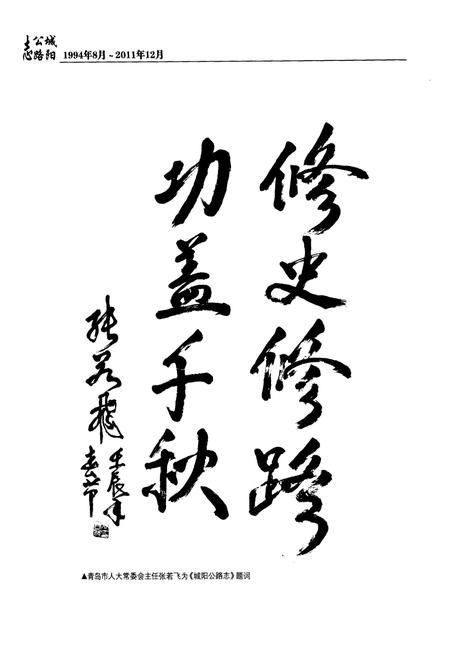 城阳公路志
1994年8月～2011年12月
修史修路
功盖千秋
张若飞
壬辰年
春节
▲青岛市人大常委会主任张若飞为《城阳公路志》题词